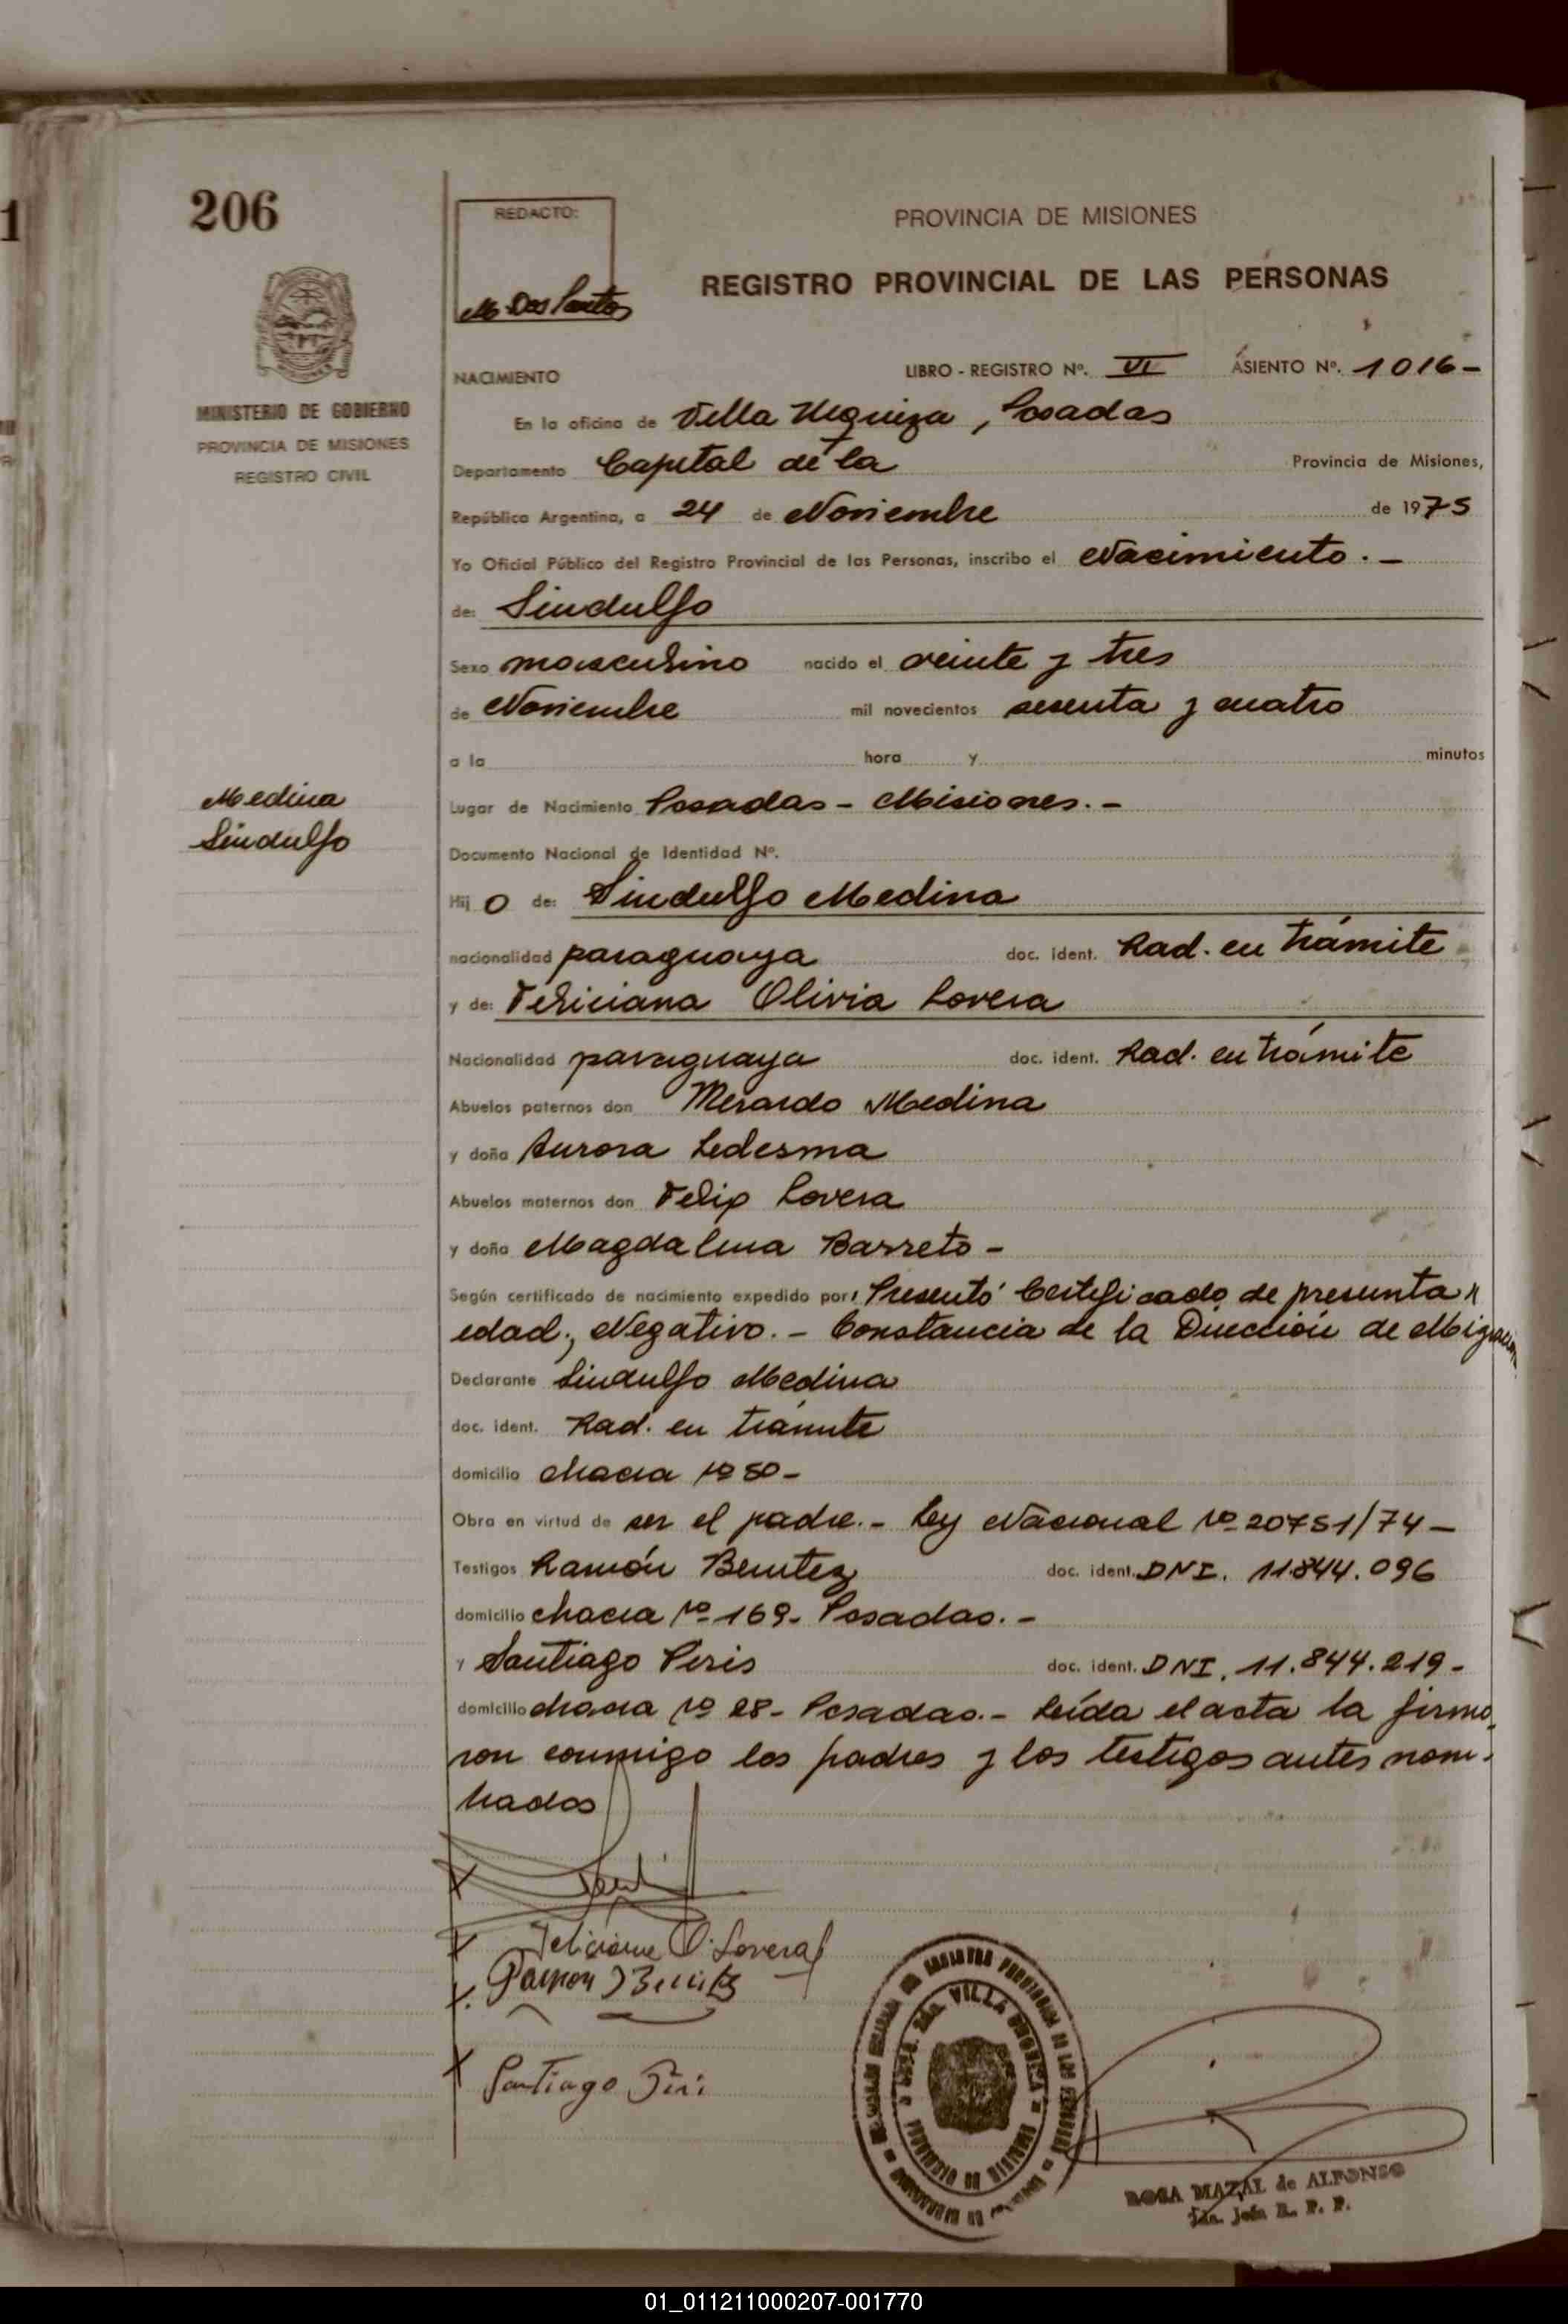 206
REDACTO:
M. Dos Santos
PROVINCIA DE MISIONES
REGISTRO PROVINCIAL DE LAS PERSONAS
MINISTERIO DE GOBIERNO
PROVINCIA DE MISIONES
REGISTRO CIVIL
NACIMIENTO LIBRO - REGISTRO Nº. VI ASIENTO Nº. 1016-
En la oficina de Villa Urquiza, Posadas
Departamento Capital de la Provincia de Misiones,
República Argentina, a 24 de Noviembre de 1975
Yo Oficial Público del Registro Provincial de las Personas, inscribo el Nacimiento.-
de: Sindulfo
Sexo masculino nacido el veinte y tres
de Noviembre mil novecientos sesenta y cuatro
a la hora y minutos
Medina
Sindulfo
Lugar de Nacimiento Posadas - Misiones.-
Documento Nacional de Identidad Nº.
Hij o de: Sindulfo Medina
nacionalidad paraguaya doc. ident. Rad. en trámite
y de: Feliciana Olivia Lovera
Nacionalidad paraguaya doc. ident. Rad. en trámite
Abuelos paternos don Merardo Medina
y doña Aurora Ledesma
Abuelos maternos don Felix Lovera
y doña Magdalena Barreto -
Según certificado de nacimiento expedido por: Presentó Certificado de presunta
edad; Negativo.- Constancia de la Dirección de Migracion
Declarante Sindulfo Medina
doc. ident. Rad. en trámite
domicilio chacra Nº 50-
Obra en virtud de ser el padre.- Ley Nacional Nº 20751/74-
Testigos Ramón Benitez doc. ident. DNI. 11.844.096
domicilio chacra Nº 169- Posadas.-
y Santiago Piris doc. ident. DNI. 11.844.219-
domicilio chacra Nº 28- Posadas.- Leída el acta la firma-
ron conmigo los padres y los testigos antes nom-
brados
Feliciana O. Lovera
Ramon Benitez
Santiago Piri
VILLA URQUIZA
ROSA MAZAL de ALFONSO
Jefa R. P. P.
01_011211000207-001770